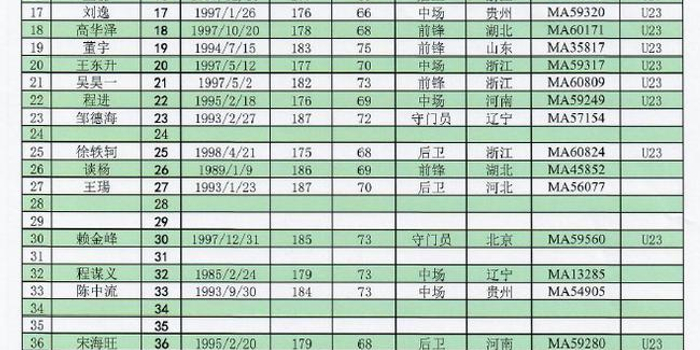 17 刘逸 17 1997/1/26 176 66 中场 贵州 MA59320 U23
18 高华泽 18 1997/10/20 178 68 前锋 湖北 MA60171 U23
19 董宇 19 1994/7/15 183 75 前锋 山东 MA35817 U23
20 王东升 20 1997/5/12 177 70 中场 浙江 MA59317 U23
21 吴昊一 21 1997/5/2 182 73 前锋 浙江 MA60809 U23
22 程进 22 1995/2/18 176 69 中场 河南 MA59249 U23
23 邹德海 23 1993/2/27 187 72 守门员 辽宁 MA57154
24 24
25 徐轶轲 25 1998/4/21 175 68 后卫 浙江 MA60824 U23
26 谈杨 26 1989/1/9 186 69 前锋 湖北 MA45852
27 王瑒 27 1993/1/23 187 70 后卫 河北 MA56077
28 28
29 29
30 赖金峰 30 1997/12/31 185 73 守门员 北京 MA59560 U23
31 31
32 程谋义 32 1985/2/24 179 73 中场 辽宁 MA13285
33 陈中流 33 1993/9/30 184 73 中场 贵州 MA54905
34 34
35 35
36 宋海旺 36 1995/2/20 179 68 后卫 河南 MA59280 U23